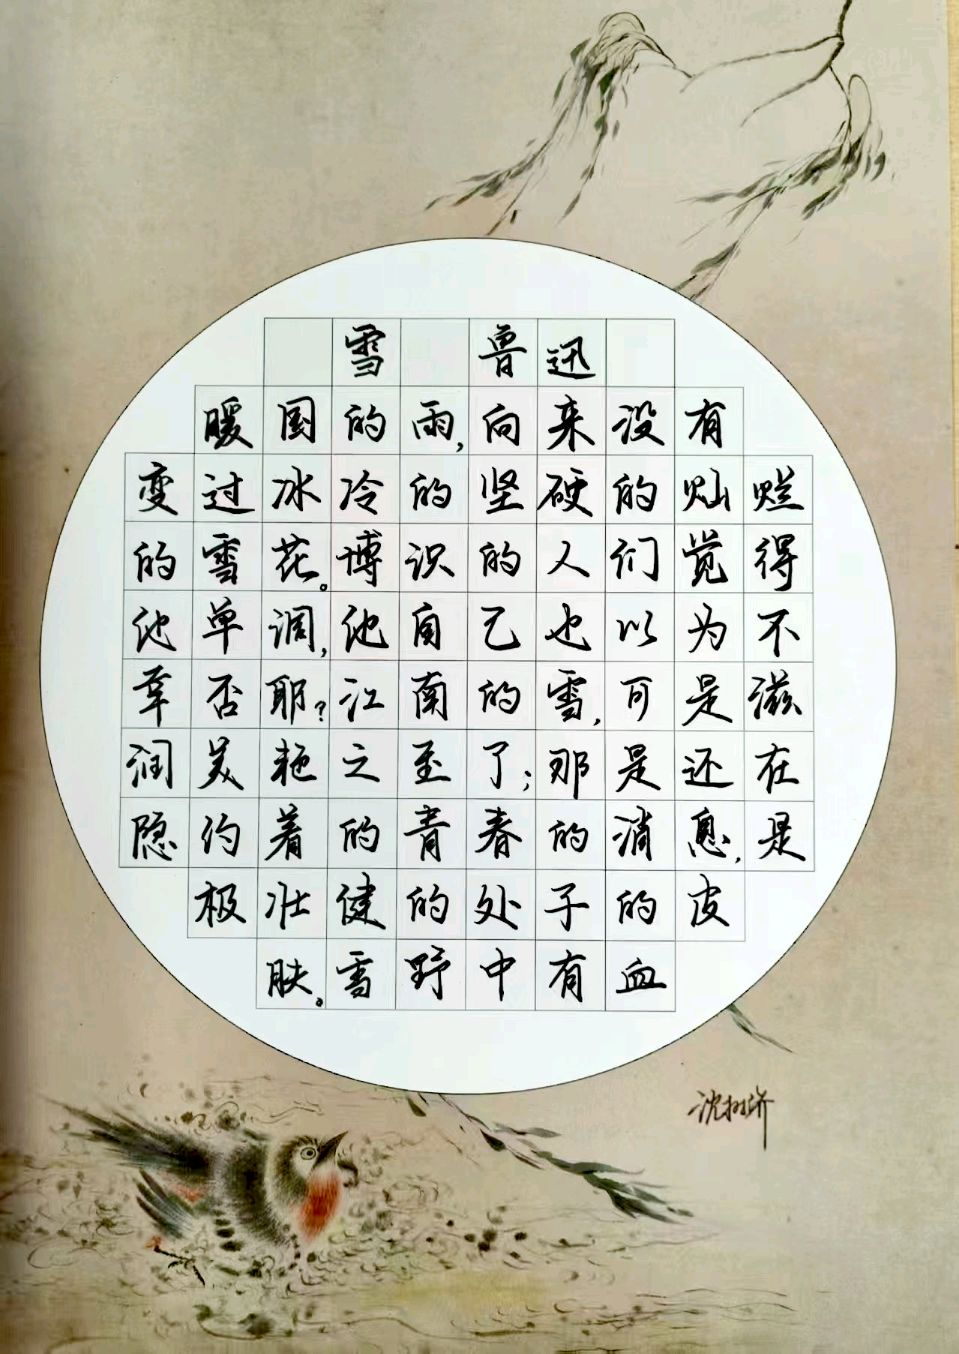 雪 鲁迅
暖国的雨,向来没有
变过冰冷的坚硬的灿烂
的雪花。博识的人们觉得
他单调,他自己也以为不
幸否耶?江南的雪,可是滋
润美艳之至了;那是还在
隐约着的青春的消息,是
极壮健的处子的皮
肤。雪野中有血